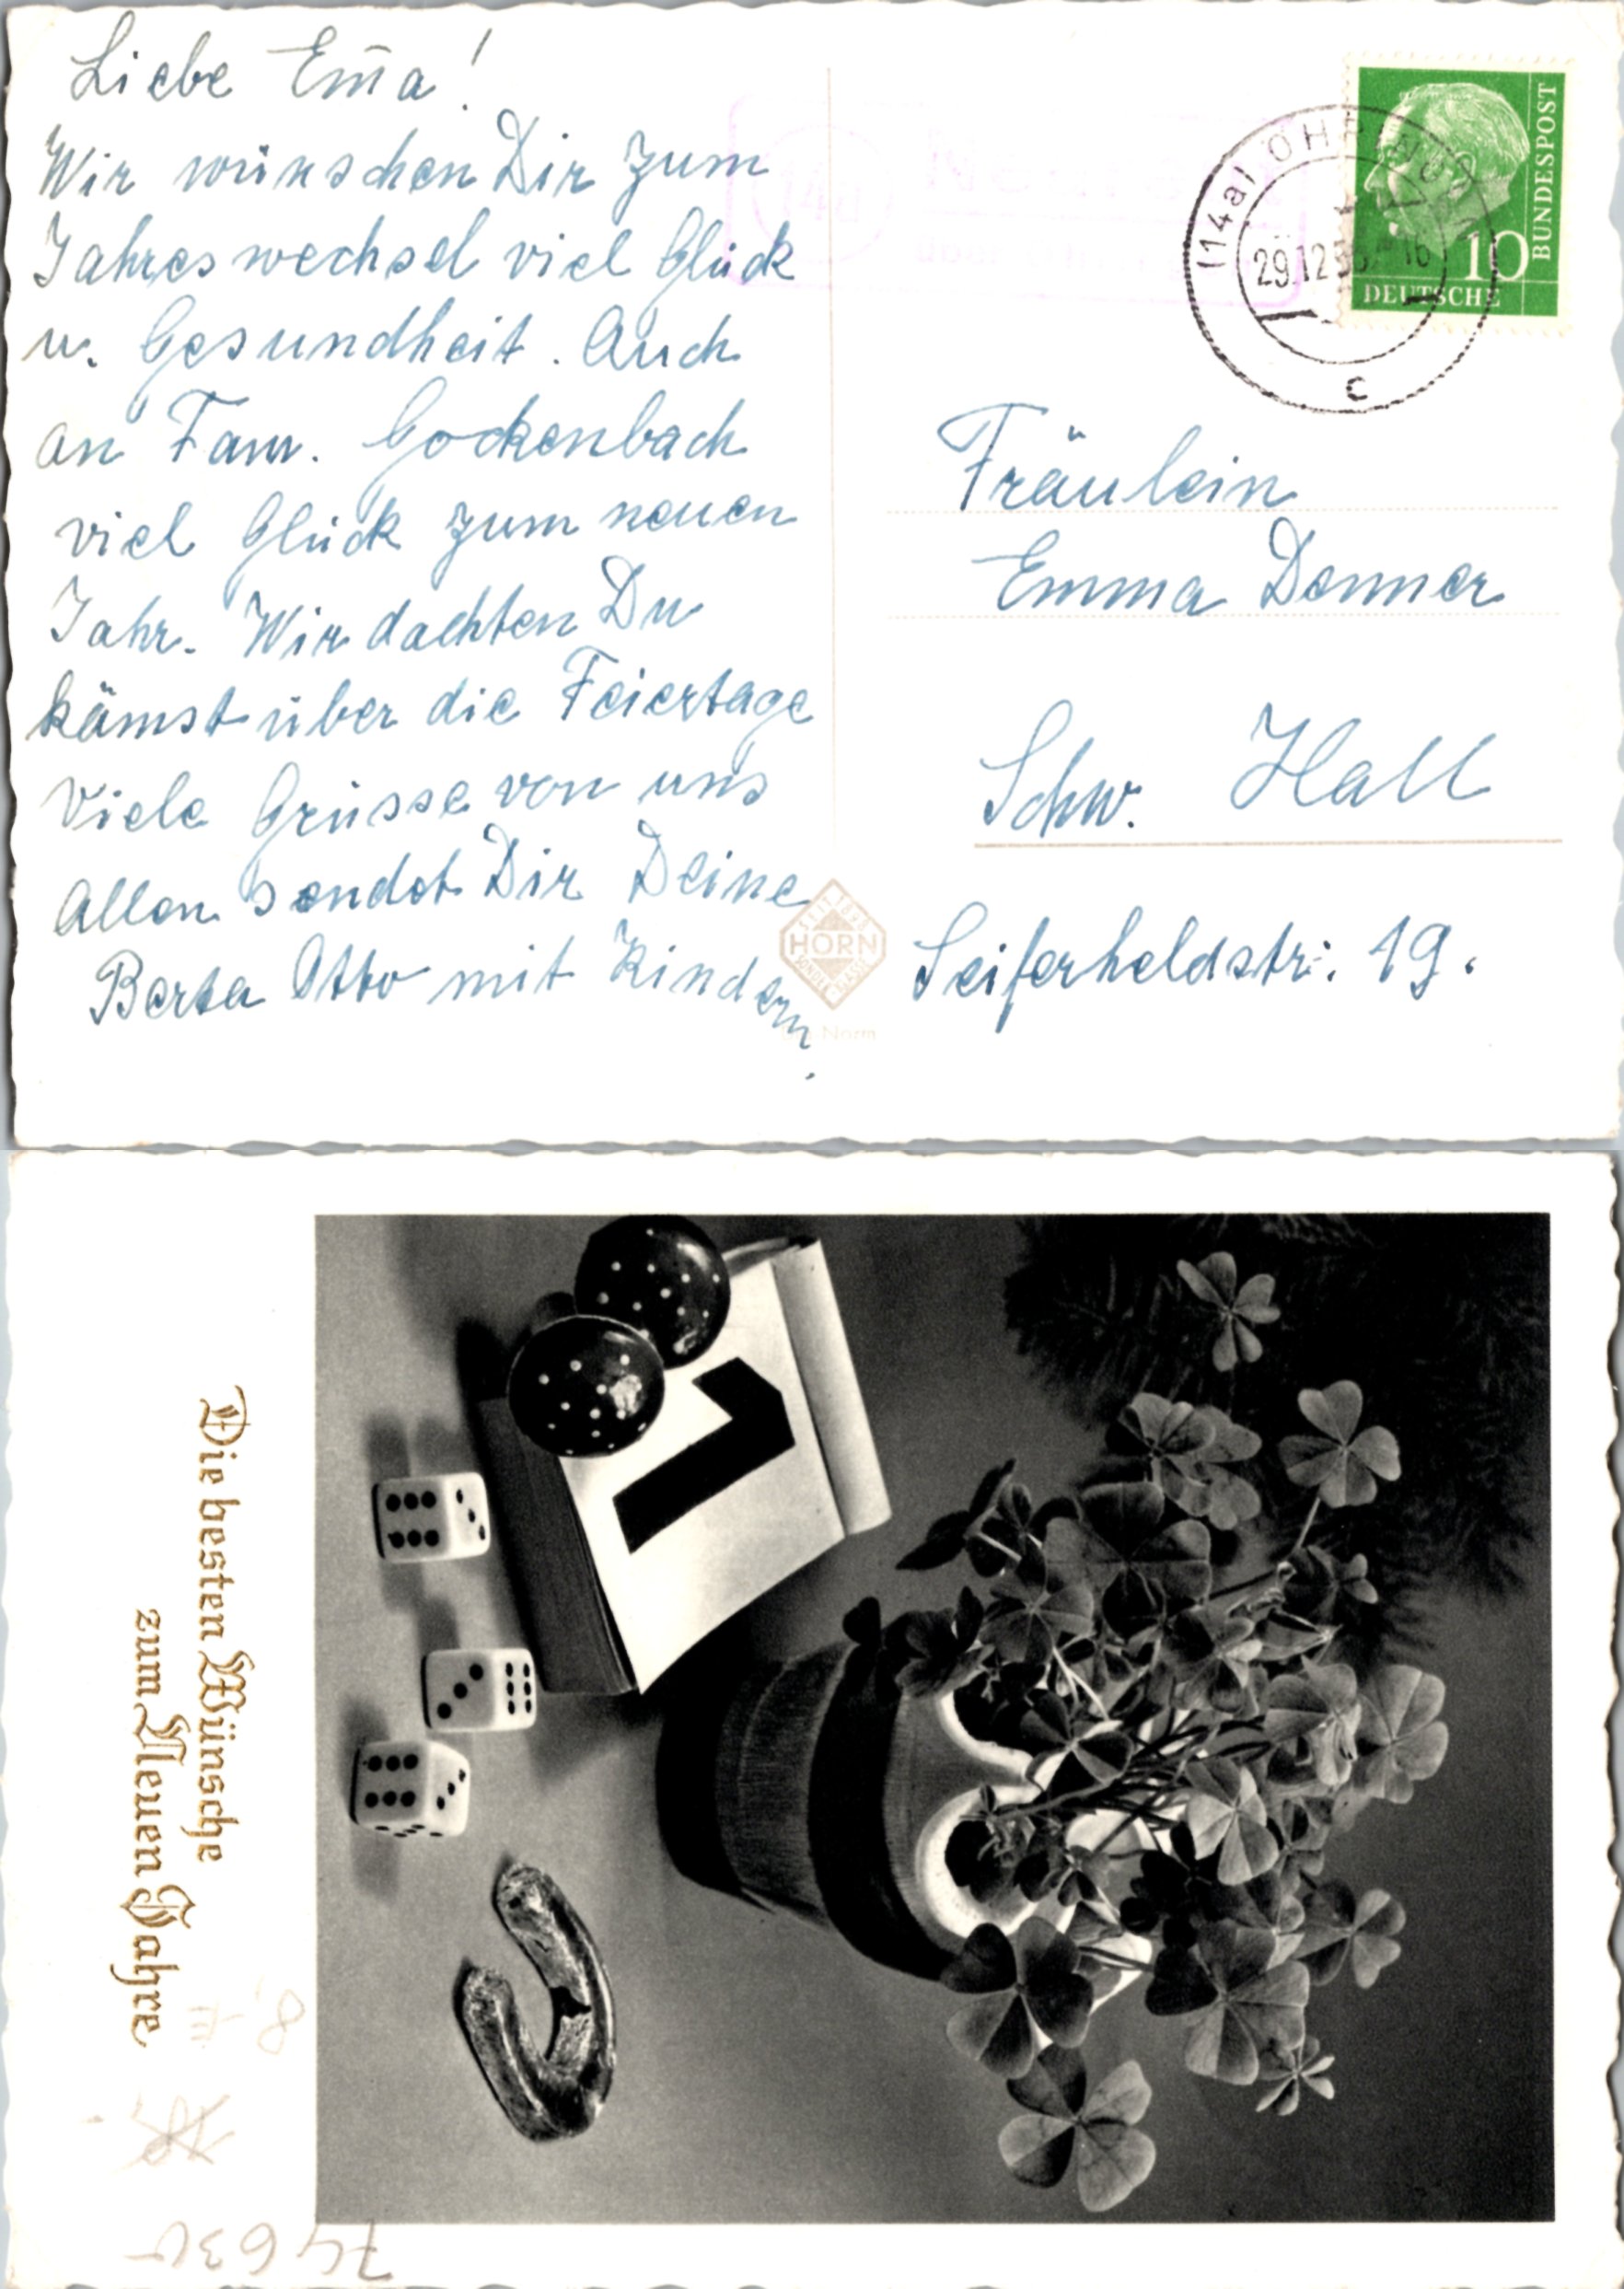 Liebe Em̄a!
Wir wünschen Dir zum
Jahreswechsel viel Glück
u. Gesundheit. Auch
an Fam. Gockenbach
viel Glück zum neuen
Jahr. Wir dachten Du
kämst über die Feiertage
Viele Grüsse von uns
Allen sendet Dir Deine
Berta Otto mit Kindern.
BUNDESPOST
10
DEUTSCHE
(14a)
29.12
c
Fräulein
Emma Denner
Schw. Hall
Seiferheldstr. 19.
SEIT 1898
HORN
SONDER-KLASSE
Norm
Die besten Wünsche
zum Neuen Jahre
1